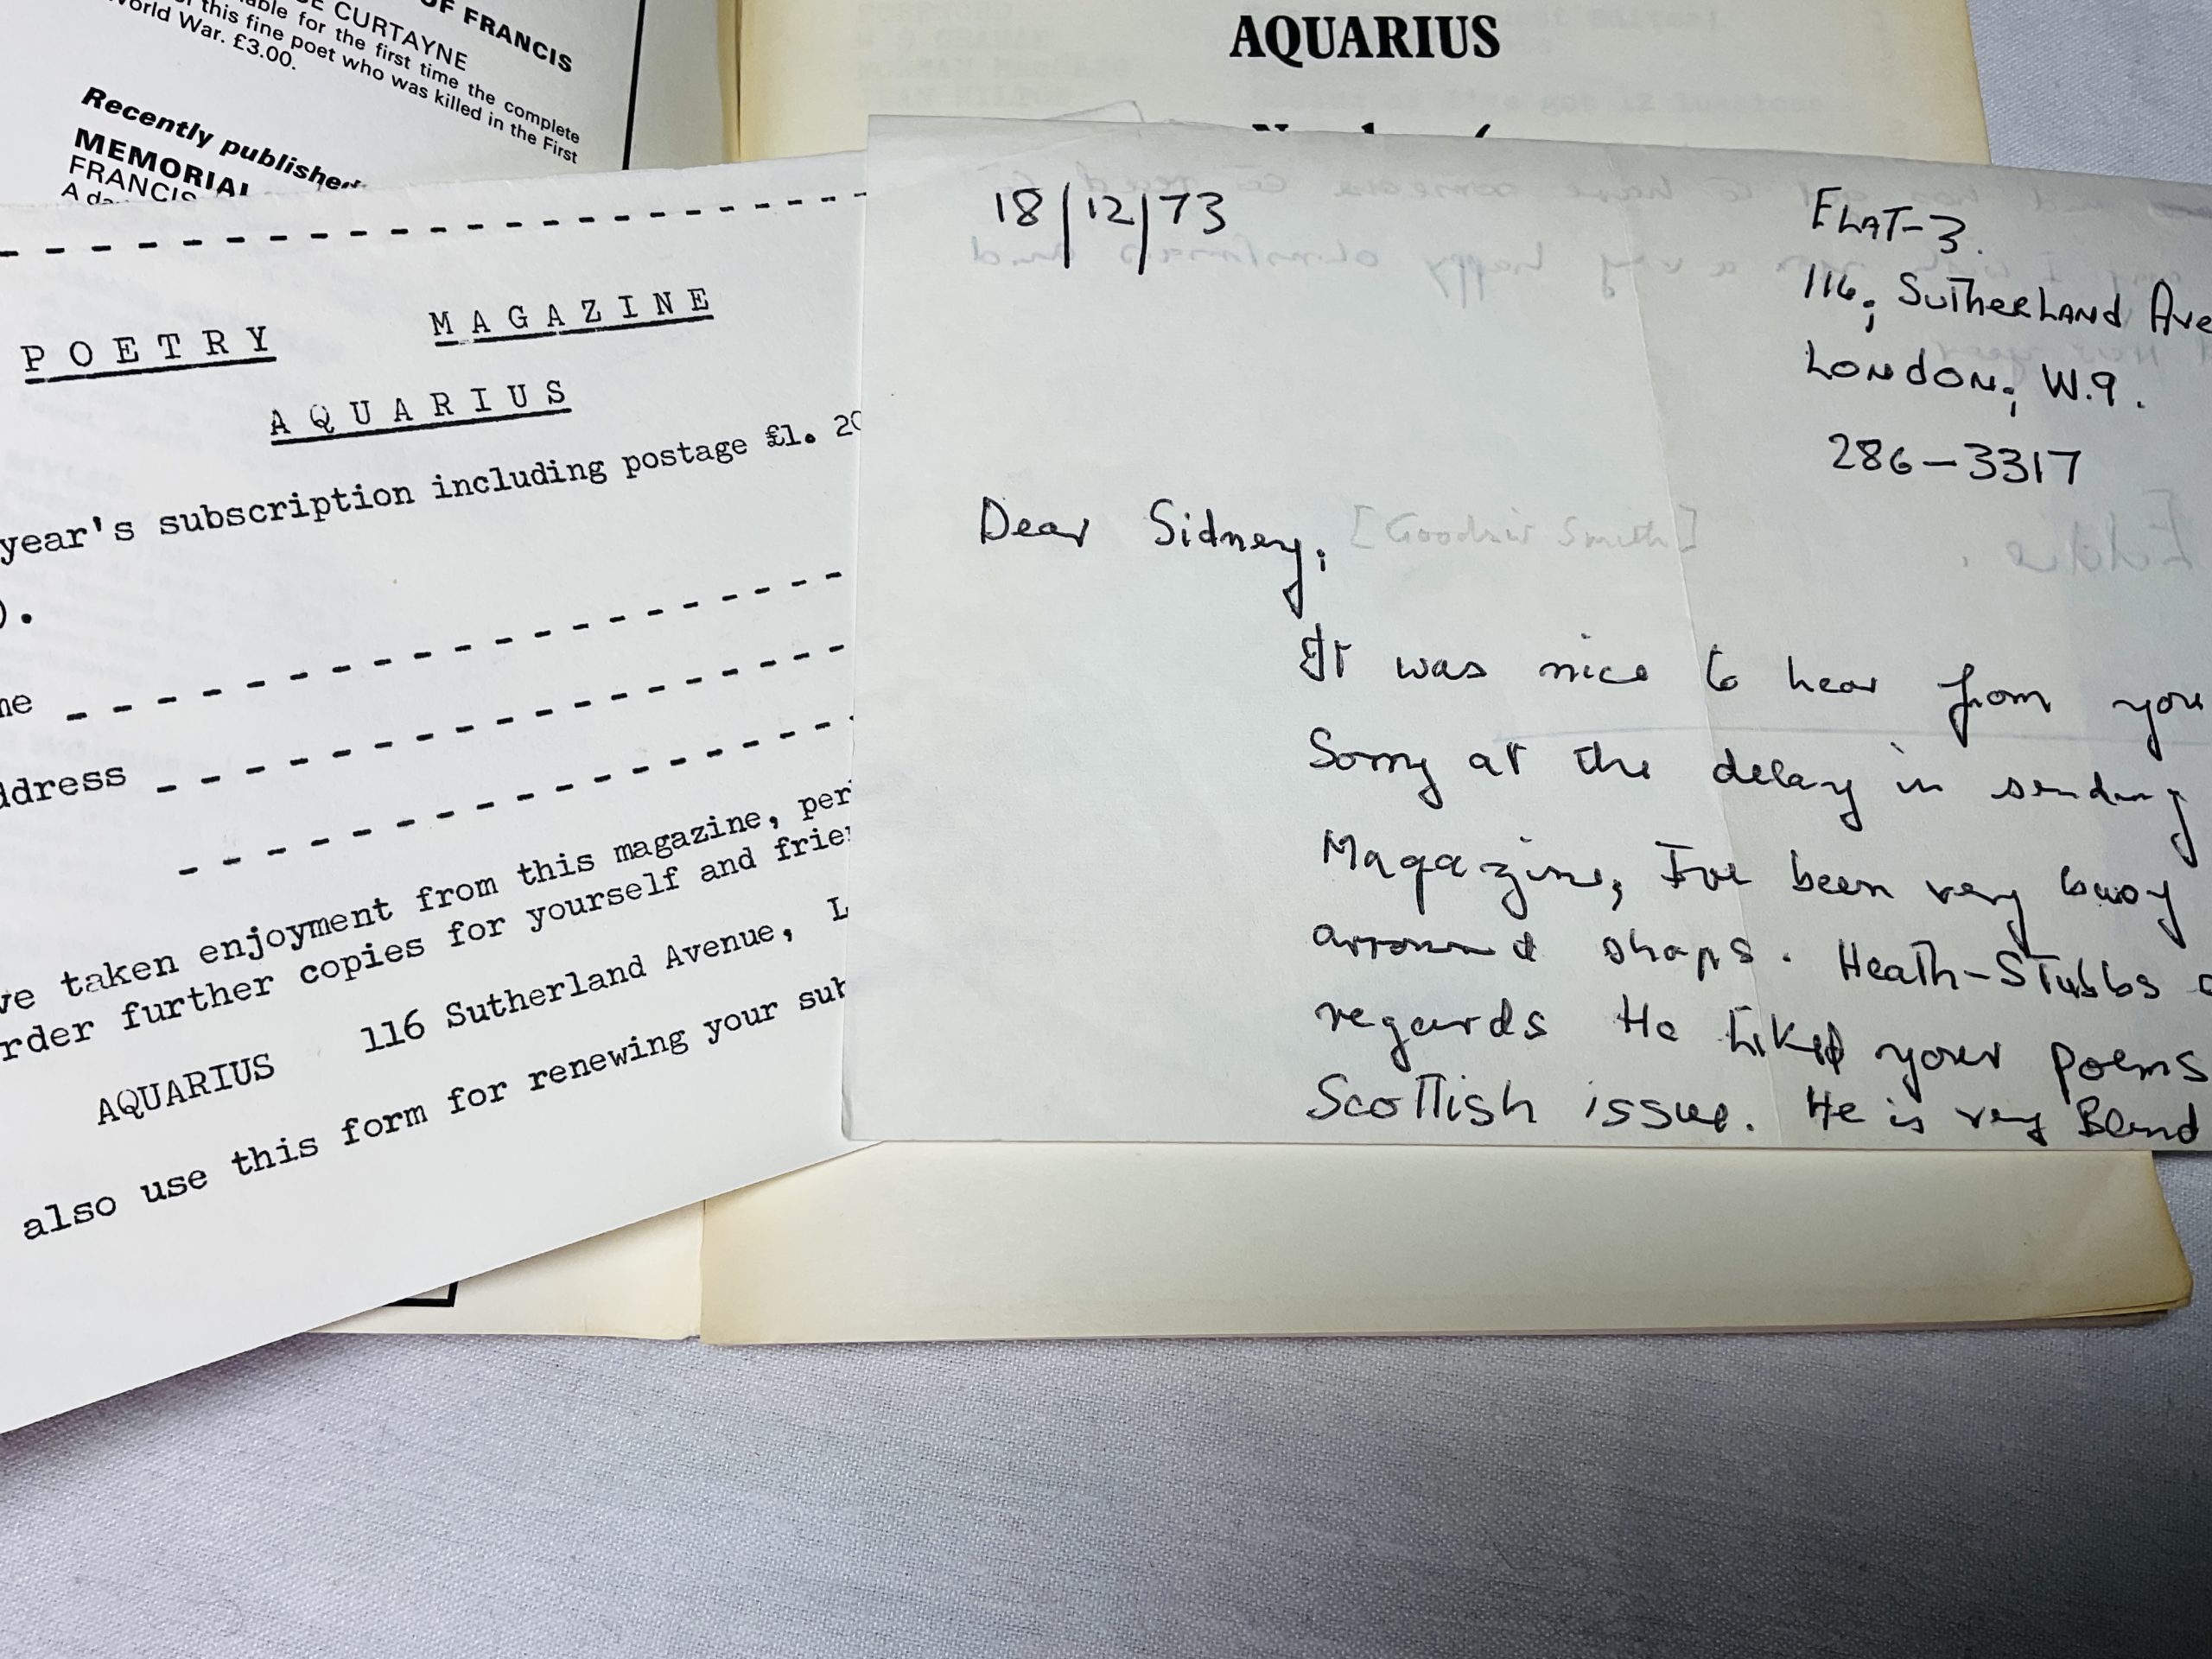 OF FRANCIS
CURTAYNE
able for the first time the complete
this fine poet who was killed in the First
World War. £3.00.
Recently published
MEMORIAL
FRANCIS
A
AQUARIUS
POETRY MAGAZINE
AQUARIUS
year's subscription including postage £1. 20
).
ddress
ve taken enjoyment from this magazine,
rder further copies for yourself and
AQUARIUS 116 Sutherland Avenue, L
also use this form for renewing your
18/12/73
FLAT-3.
116, Sutherland Ave
London, W.9.
286-3317
Dear Sidney, [Goodsir Smith]
It was nice to hear from you
Sorry at the delay in sending
Magazine, I've been very busy
arround shops. Heath-Stubbs
regards He liked your poems
Scottish issue. He is very Blind
Eddie.